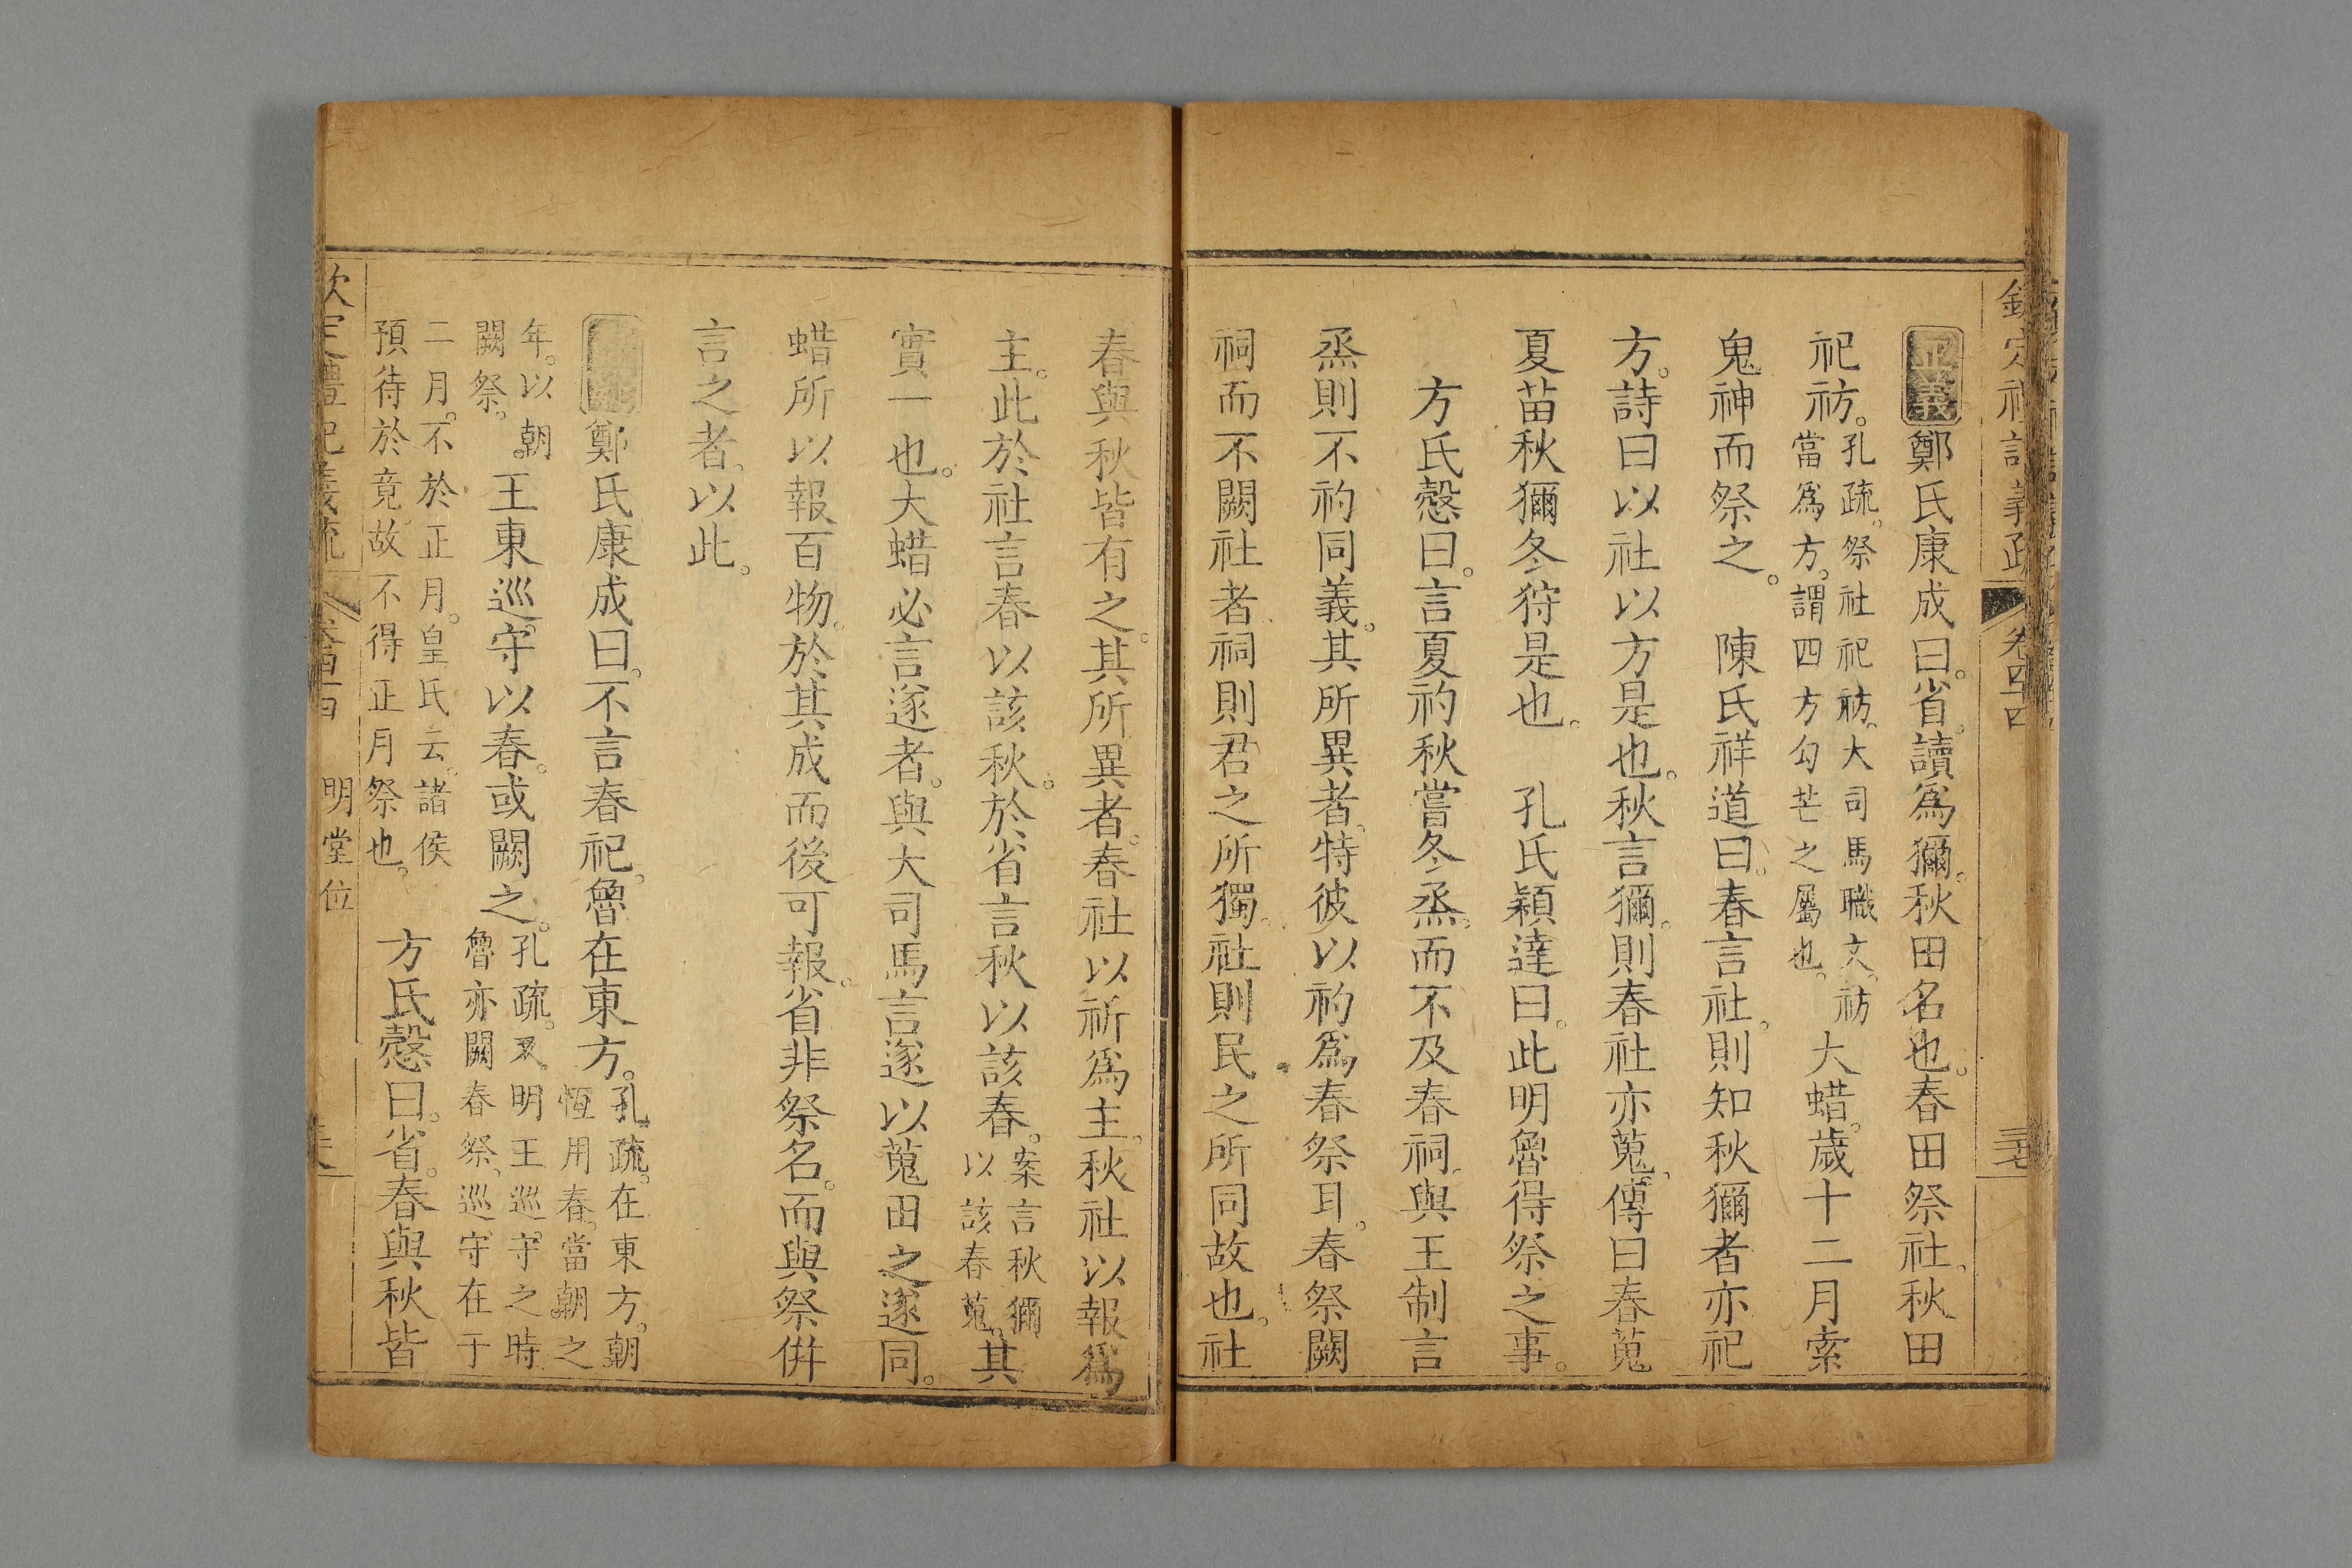 正義鄭氏康成曰。省。讀爲獮。秋田名也。春田祭社。秋田
祀祊。孔疏。祭社祀祊。大司馬職文。祊
當爲方。謂四方勾芒之屬也。大蜡。歲十二月索
鬼神而祭之。　陳氏祥道曰。春言社。則知秋獮者亦祀
方。詩曰以社以方是也。秋言獮。則春社亦蒐。傳曰春蒐
夏苗秋獮冬狩是也。　孔氏穎達曰。此明魯得祭之事。
方氏慤曰。言夏礿秋嘗冬烝。而不及春祠。與王制言
烝則不礿同義。其所異者。特彼以礿爲春祭耳。春祭闕
祠而不闕社者。祠則君之所獨。社則民之所同故也。社
春與秋皆有之。其所異者。春社以祈爲主。秋社以報爲
主。此於社言春以該秋。於省言秋以該春。案言秋獮
以該春蒐。其
實一也。大蜡必言遂者。與大司馬言遂以蒐田之遂同。
蜡所以報百物。於其成而後可報。省非祭名。而與祭併
言之者。以此。
鄭氏康成曰。不言春祀。魯在東方。孔疏。在東方。朝
恆用春。當朝之
年。以朝
闕祭。王東巡守以春。或闕之。孔疏。又。明王巡守之時
魯亦闕春祭。巡守在于
二月。不於正月。皇氏云。諸侯
預待於竟。故不得正月祭也。　方氏慤曰。省。春與秋皆
卷四十四　明堂位